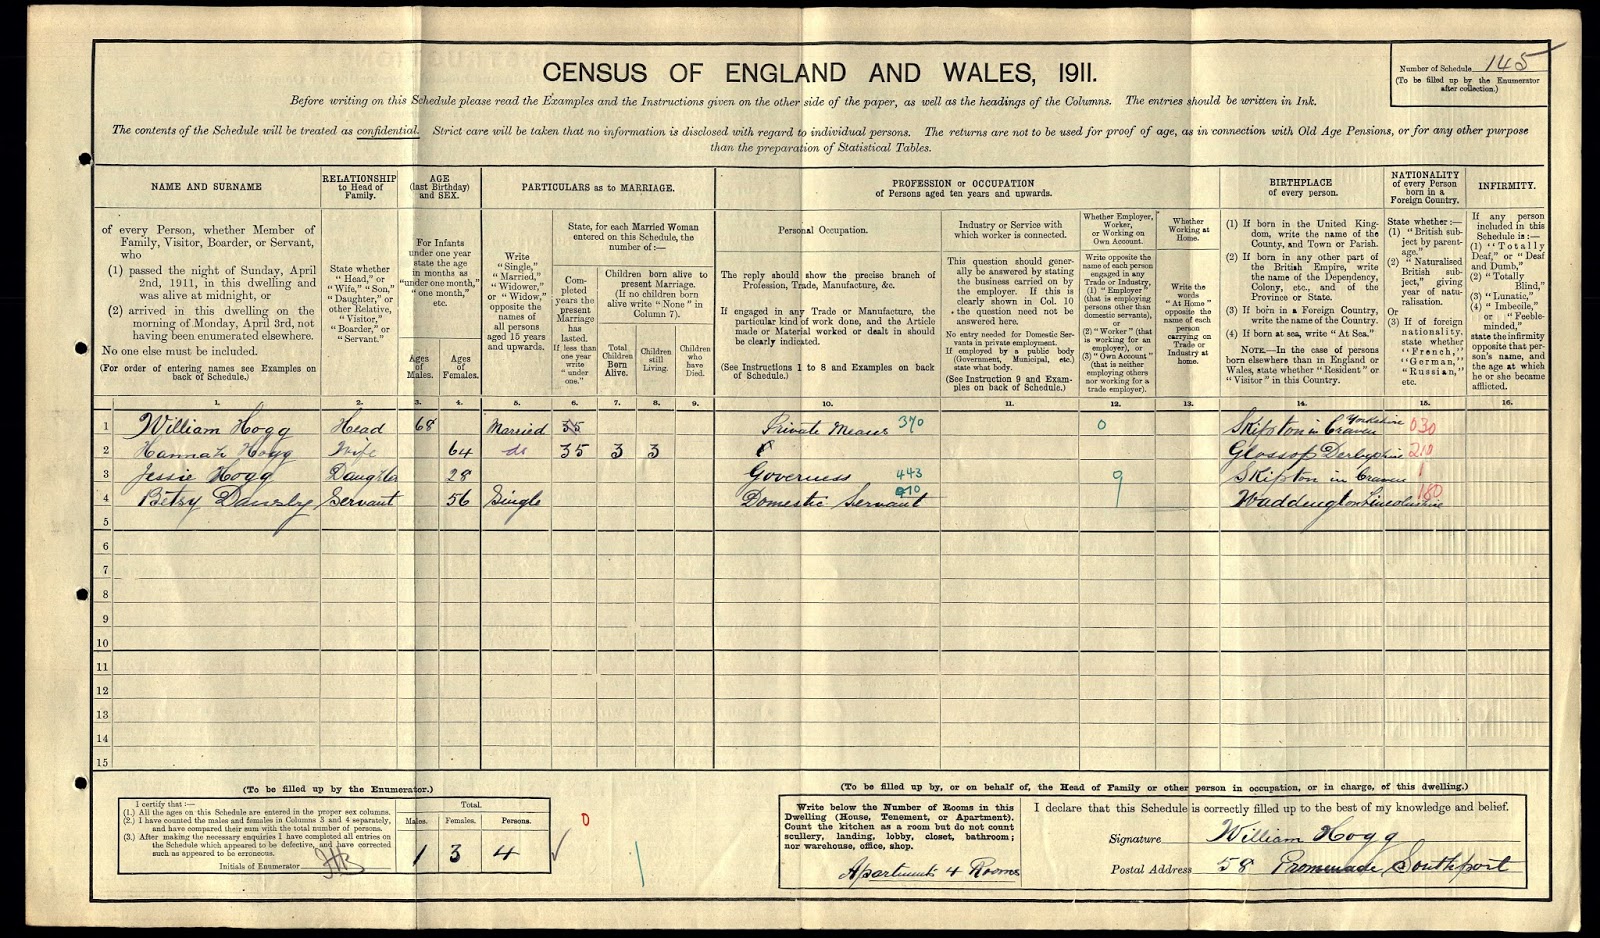 CENSUS OF ENGLAND AND WALES, 1911.
Number of Schedule 145
(To be filled up by the Enumerator
after collection.)
Before writing on this Schedule please read the Examples and the Instructions given on the other side of the paper, as well as the headings of the Columns. The entries should be written in Ink.
The contents of the Schedule will be treated as confidential. Strict care will be taken that no information is disclosed with regard to individual persons. The returns are not to be used for proof of age, as in connection with Old Age Pensions, or for any other purpose
than the preparation of Statistical Tables.
NAME AND SURNAME
of every Person, whether Member of
Family, Visitor, Boarder, or Servant,
who
(1) passed the night of Sunday, April
2nd, 1911, in this dwelling and
was alive at midnight, or
(2) arrived in this dwelling on the
morning of Monday, April 3rd, not
having been enumerated elsewhere.
No one else must be included.
(For order of entering names see Examples on
back of Schedule.)
RELATIONSHIP
to Head of
Family.
State whether
"Head," or
"Wife," "Son,"
"Daughter," or
other Relative,
"Visitor,"
"Boarder," or
"Servant."
AGE
(last Birthday)
and SEX.
For Infants
under one year
state the age
in months as
"under one month,"
"one month,"
etc.
Ages
of
Males.
Ages
of
Females.
PARTICULARS as to MARRIAGE.
Write
"Single,"
"Married,"
"Widower,"
or "Widow,"
opposite the
names of
all persons
aged 15 years
and upwards.
State, for each Married Woman
entered on this Schedule, the
number of :—
Com-
pleted
years the
present
Marriage
has
lasted.
If less than
one year
write
"under
one."
Children born alive to
present Marriage.
(If no children born
alive write "None" in
Column 7).
Total
Children
Born
Alive.
Children
still
Living.
Children
who
have
Died.
PROFESSION or OCCUPATION
of Persons aged ten years and upwards.
Personal Occupation.
The reply should show the precise branch of
Profession, Trade, Manufacture, &c.
If engaged in any Trade or Manufacture, the
particular kind of work done, and the Article
made or Material worked or dealt in should
be clearly indicated.
(See Instructions 1 to 8 and Examples on back
of Schedule.)
Industry or Service with
which worker is connected.
This question should gener-
ally be answered by stating
the business carried on by
the employer. If this is
clearly shown in Col. 10
the question need not be
answered here.
No entry needed for Domestic Ser-
vants in private employment.
If employed by a public body
(Government, Municipal, etc.)
state what body.
(See Instruction 9 and Exam-
ples on back of Schedule.)
Whether Employer,
Worker,
or Working on
Own Account.
Write opposite the
name of each person
engaged in any
Trade or Industry,
(1) "Employer"
(that is employing
persons other than
domestic servants),
or
(2) "Worker" (that
is working for an
employer), or
(3) "Own Account"
(that is neither
employing others
nor working for a
trade employer).
Whether
Working at
Home.
Write the
words
"At Home"
opposite the
name of each
person
carrying on
Trade or
Industry at
home.
BIRTHPLACE
of every person.
(1) If born in the United King-
dom, write the name of the
County, and Town or Parish.
(2) If born in any other part of
the British Empire, write
the name of the Dependency,
Colony, etc., and of the
Province or State.
(3) If born in a Foreign Country,
write the name of the Country.
(4) If born at sea, write "At Sea."
NOTE.—In the case of persons
born elsewhere than in England or
Wales, state whether "Resident" or
"Visitor" in this Country.
NATIONALITY
of every Person
born in a
Foreign Country.
State whether :—
(1) "British sub-
ject by parent-
age,"
(2) "Naturalised
British sub-
ject," giving
year of natu-
ralisation.
Or
(3) If of foreign
nationality,
state whether
"French,"
"German,"
"Russian,"
etc.
INFIRMITY.
If any person
included in this
Schedule is :—
(1) "Totally
Deaf," or "Deaf
and Dumb,"
(2) "Totally
Blind,"
(3) "Lunatic,"
(4) "Imbecile,"
or "Feeble-
minded,"
state the infirmity
opposite that per-
son's name, and
the age at which
he or she became
afflicted.
1. 2. 3. 4. 5. 6. 7. 8. 9. 10. 11. 12. 13. 14. 15. 16.
1 William Hogg Head 68 Married 35 Private Means 370 0 Skipton in Craven Yorkshire 030
2 Hannah Hogg Wife 64 do 35 3 3 Glossop Derbyshire 210
3 Jessie Hogg Daughter 28 Governess 443 9 Skipton in Craven
4 Betsy Servant 56 Single Domestic Servant Waddington Lincolnshire 180
5
6
7
8
9
10
11
12
13
14
15
(To be filled up by the Enumerator.)
I certify that :—
(1.) All the ages on this Schedule are entered in the proper sex columns.
(2.) I have counted the males and females in Columns 3 and 4 separately,
and have compared their sum with the total number of persons.
(3.) After making the necessary enquiries I have completed all entries on
the Schedule which appeared to be defective, and have corrected
such as appeared to be erroneous.
Initials of Enumerator
Total.
Males. Females. Persons.
1 3 4
0
(To be filled up by, or on behalf of, the Head of Family or other person in occupation, or in charge, of this dwelling.)
Write below the Number of Rooms in this
Dwelling (House, Tenement, or Apartment).
Count the kitchen as a room but do not count
scullery, landing, lobby, closet, bathroom;
nor warehouse, office, shop.
Apartments 4 Rooms
I declare that this Schedule is correctly filled up to the best of my knowledge and belief.
Signature William Hogg
Postal Address 58 Promenade, Southport